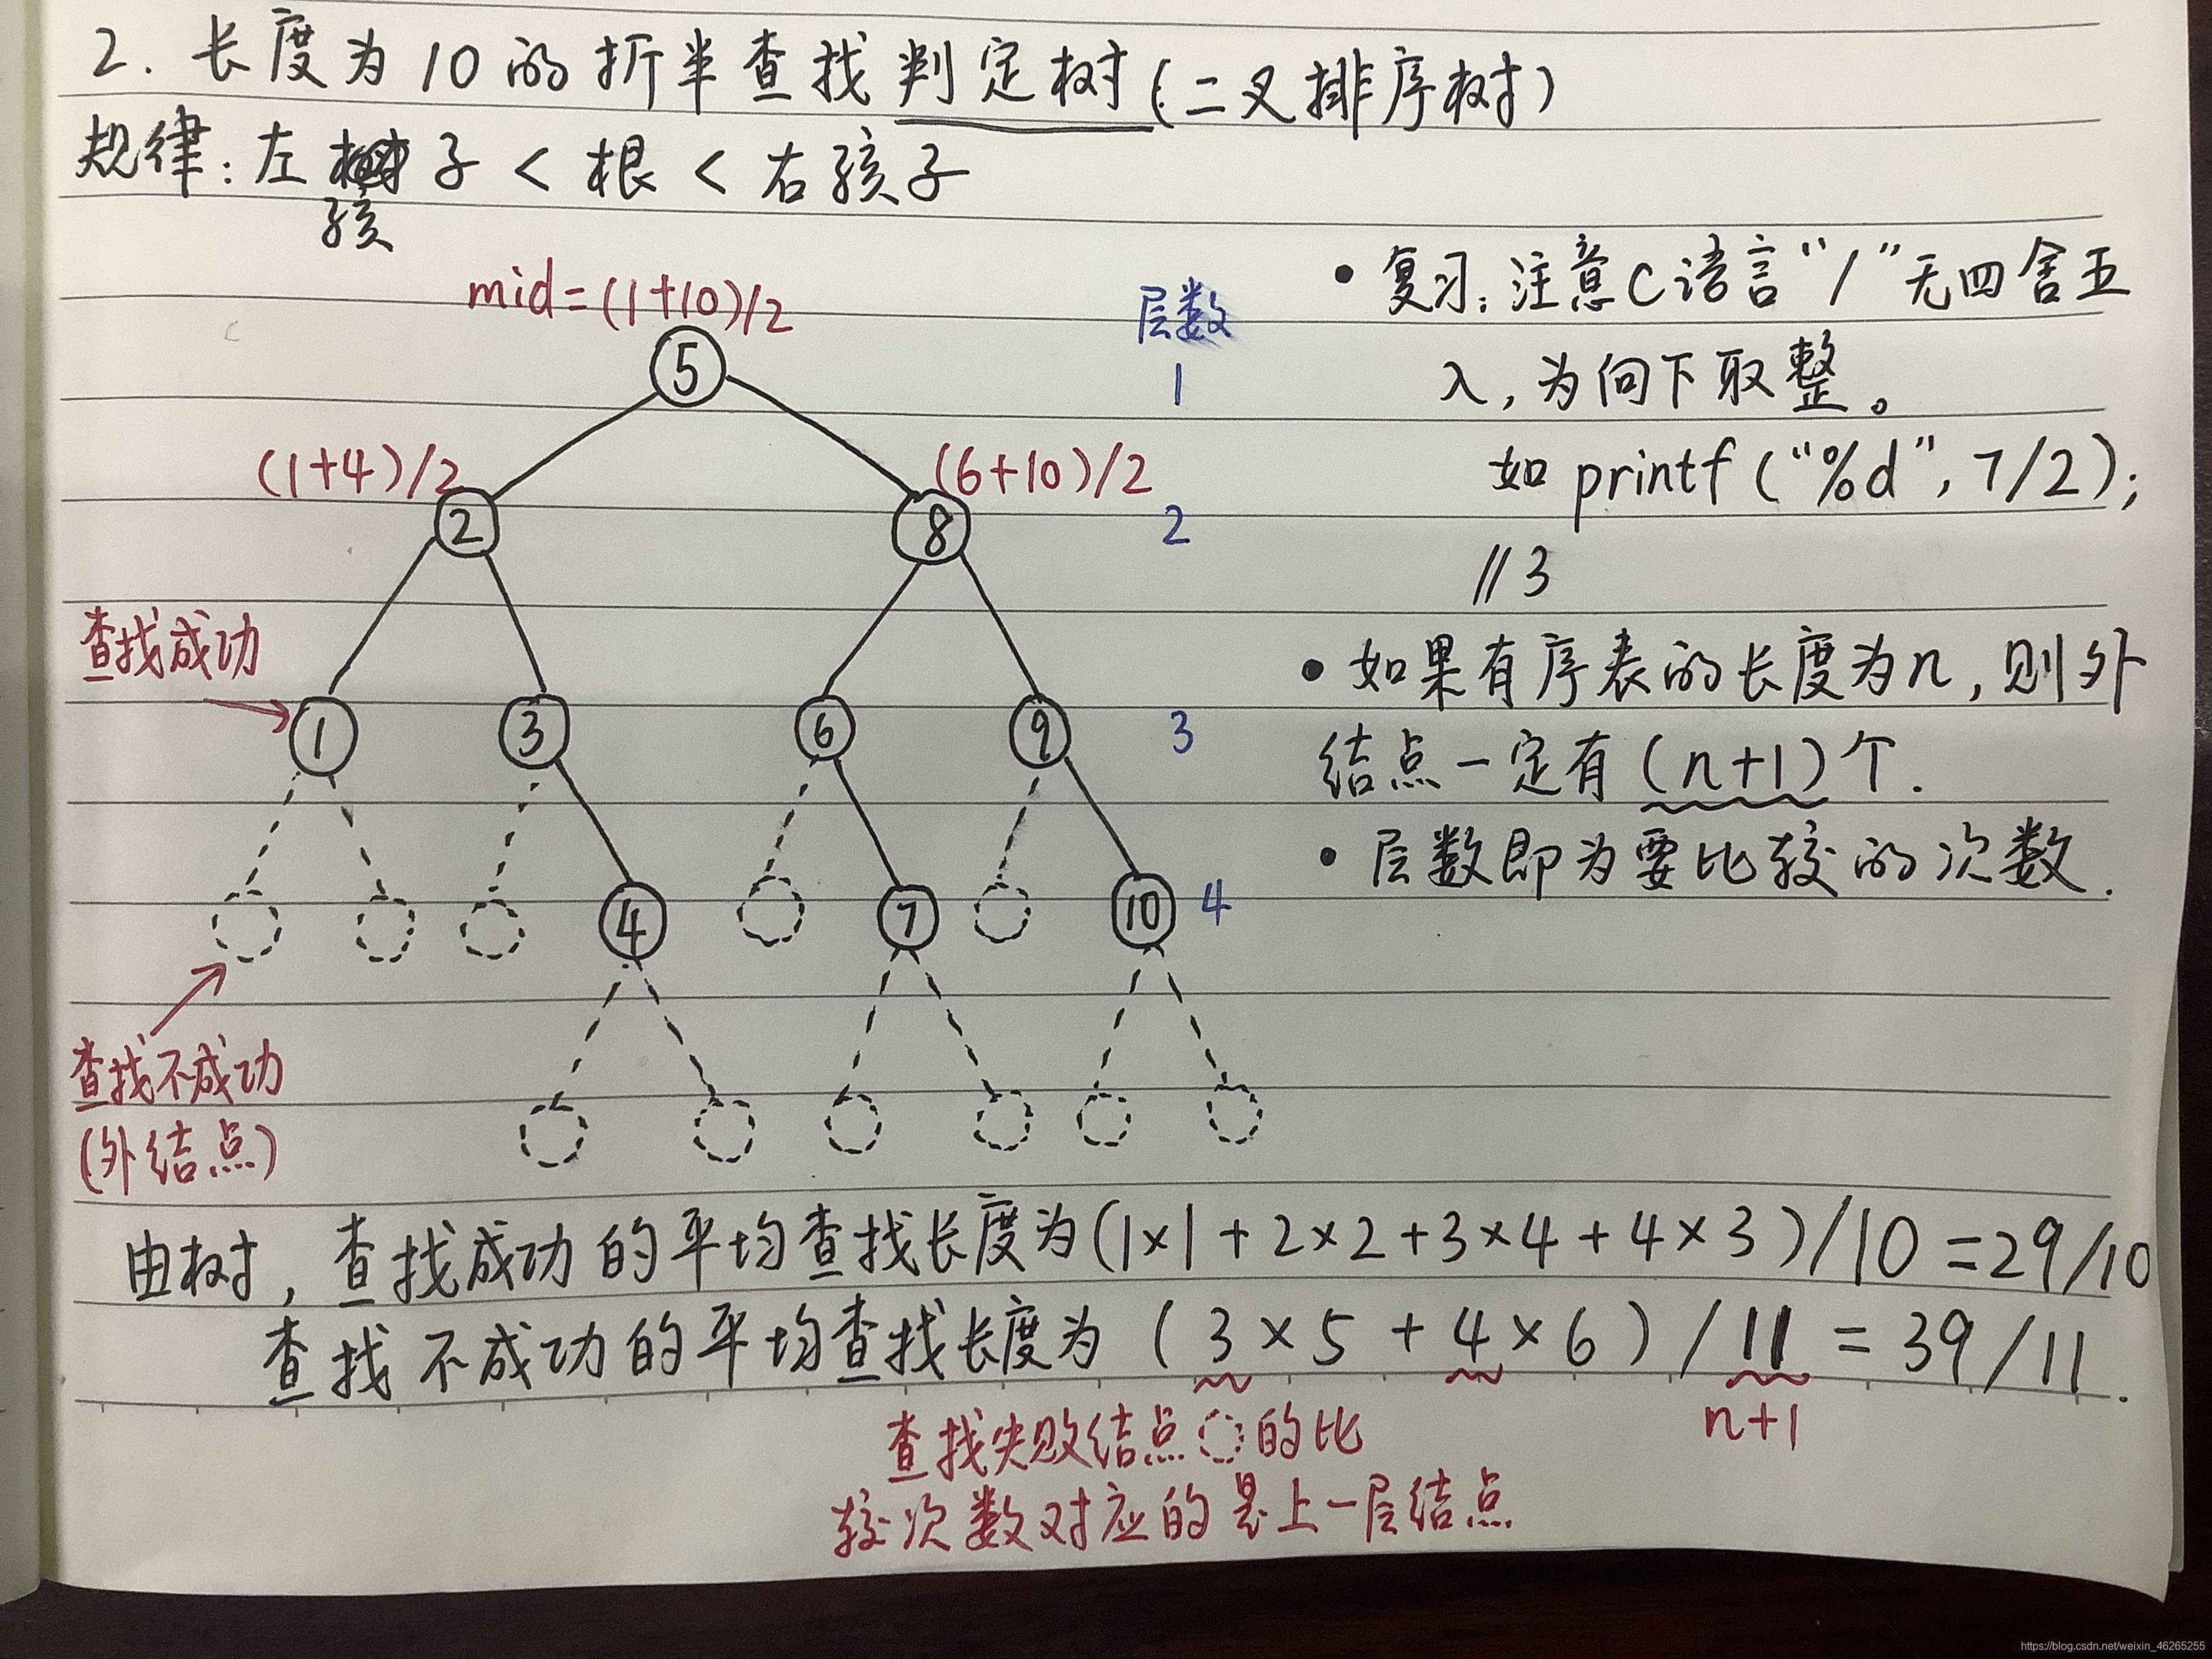 2. 长度为10的折半查找判定树(二叉排序树)
规律:左子 < 根 < 右孩子
孩
mid=(1+10)/2
层数
5
1
(1+4)/2
(6+10)/2
2
8
2
查找成功
1
3
6
9
3
4
7
10
4
查找不成功
(外结点)
• 复习:注意C语言“/”无四舍五
入,为向下取整。
如 printf(“%d”,7/2);
//3
• 如果有序表的长度为n,则外
结点一定有(n+1)个.
• 层数即为要比较的次数.
由树,查找成功的平均查找长度为(1×1+2×2+3×4+4×3)/10=29/10
查找不成功的平均查找长度为(3×5+4×6)/11=39/11.
n+1
查找失败结点的比
较次数对应的是上一层结点
https://blog.csdn.net/weixin_46265255